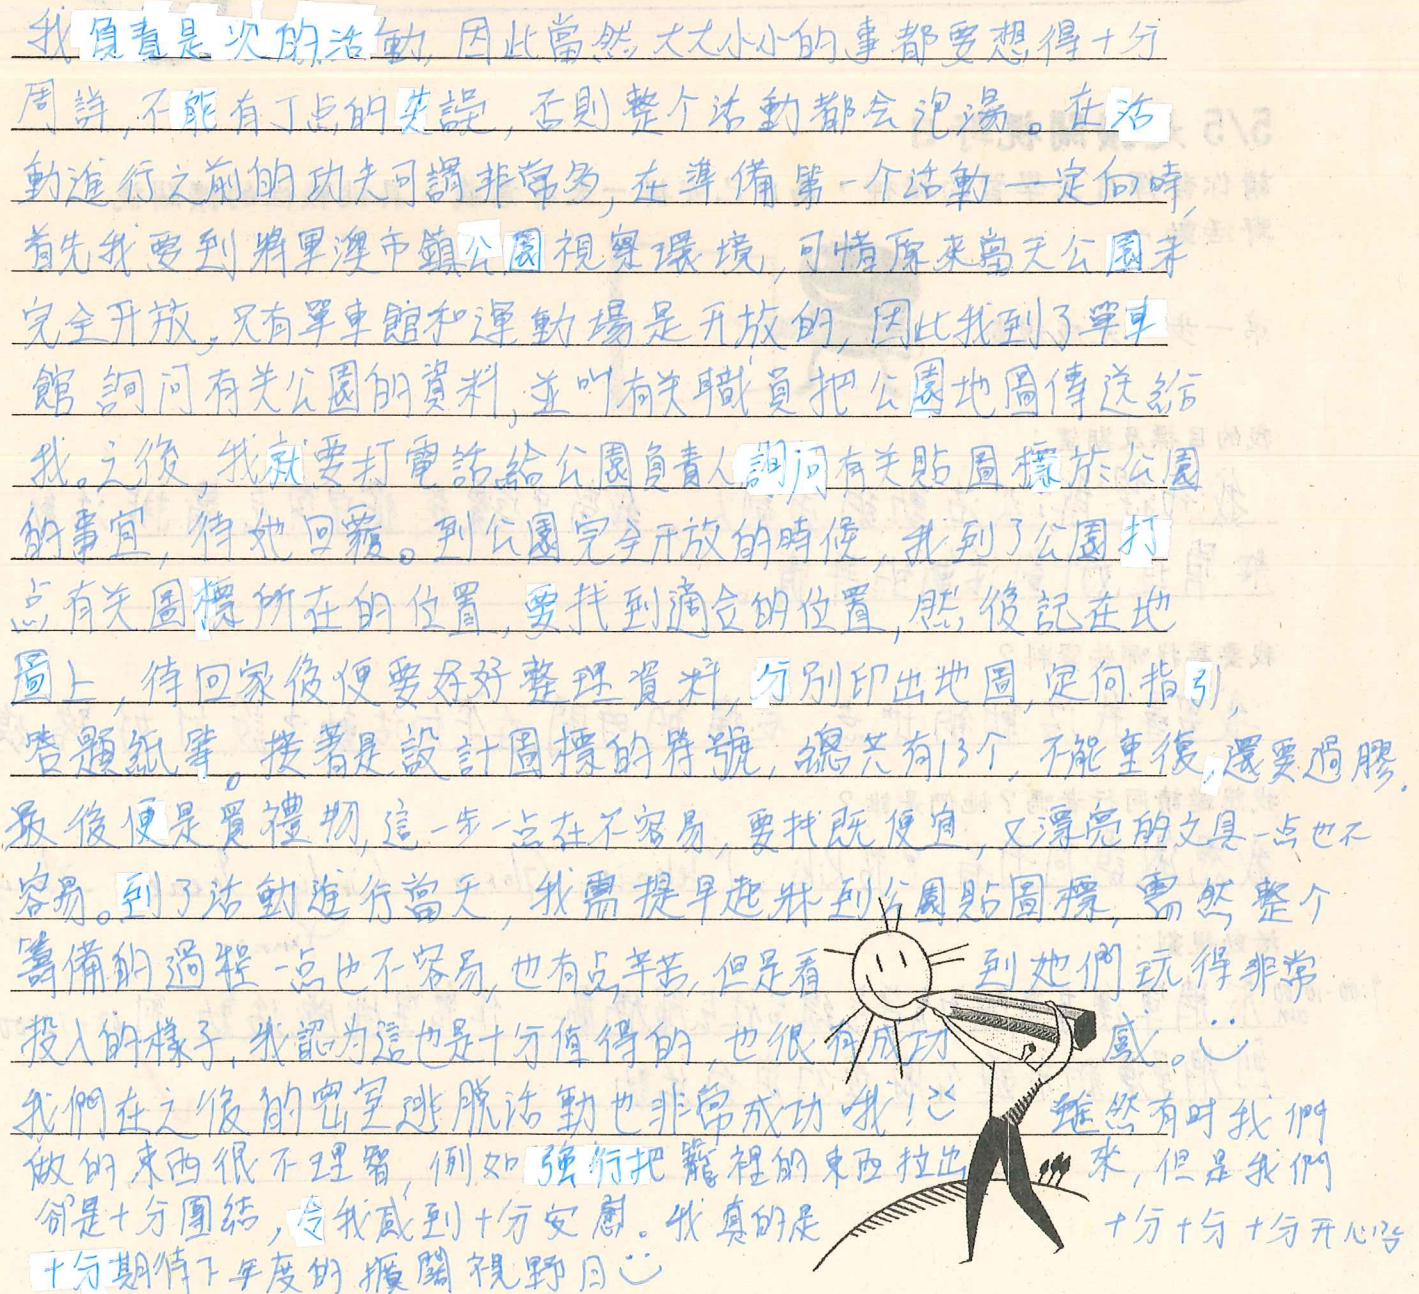 我負責是次的活動,因此當然大大小小的事都要想得十分
周詳,不能有丁点的失誤,否則整个活動都会泡湯。在活
動進行之前的功夫可謂非常多,在準備第一个活動—定向時,
首先我要到將軍澳市鎮公園視察環境,可惜原來當天公園未
完全开放,只有單車館和運動場是开放的,因此我到了單車
館詢问有关公園的資料,並叫有关職員把公園地圖傳送給
我。之後,我就要打電話給公園負責人詢问有关貼圖標於公園
的事宜,待她回覆。到公園完全开放的時候,我到了公園打
点有关圖標所在的位置,要找到適合的位置,然後記在地
圖上,待回家後便要好好整理資料,分別印出地圖,定向指引,
答題紙等。接著是設計圖標的符號,總共有13个,不能重復,還要過膠.
最後便是買禮物,這一步一点在不容易,要找既便宜,又漂亮的文具一点也不
容易。到了活動進行當天,我需提早起牀到公園貼圖標,需然整个
籌備的過程一点也不容易,也有点辛苦,但是看到她們玩得非常
投入的樣子,我認为這也是十分值得的,也很有成功感。
我們在之後的密室逃脫活動也非常成功哦!雖然有时我們
做的東西很不理智,例如強行把籠裡的東西拉出來,但是我們
卻是十分團結,令我感到十分安慰。我真的是十分十分十分开心
十分期待下年度的擴闊視野日